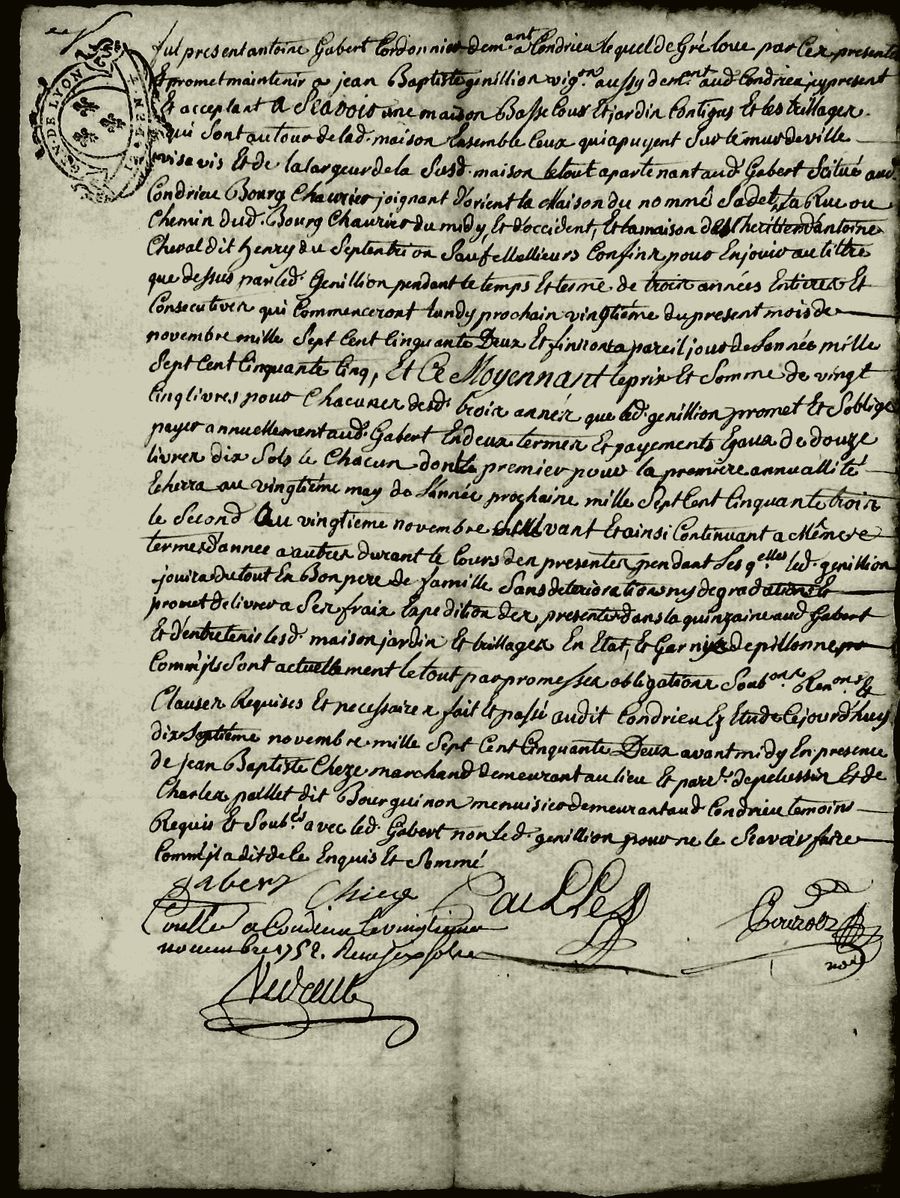 GEN. DE LYON
fut present antoine Gabert Cordonnier dem.ant a Condrieu lequel de Gré loue par Ces presentes
Et promet maintenir a jean Baptiste genillion vig.on aussy dem.ant aud Condrieu jcy present
Et acceptant A Scavoir une maison Basse Cour Et jardin Contigus Et les trillages
qui Sont autour de lad. maison Ensemble Ceux qui apuyent Sur le mur de ville
visavis Et de la largeur de la Susd. maison le tout apartenant aud Gabert Situé aud
Condrieu Bourg Chaurier joignant d'orient la Maison du nommé Sadet, la Rue ou
Chemin dud. Bourg Chaurier du midy, Et d'occident, Et la maison des heritiers d'antoine
Cheval dit henry du Septentrion Sauf Meillieurs Confins pour En jouir au tiltre
que dessus par led. Genillion pendant le temps Et terme de trois années Entieres Et
Consecutives qui Commenceront lundy prochain vingtiéme du present mois de
novembre mille Sept Cent Cinquante Deux Et finiront a pareil jour de Lannée mille
Sept Cent Cinquante Cinq, Et Ce Moyennant le prix Et Somme de vingt
Cinq livres pour Chacunes desd. trois années que led. genillion promet Et S'oblige
payer annuellement aud. Gabert En deux termes Et payements Egaux de douze
livres dix Sols le Chacun dont le premier pour la premiere annuallité
Echerra au vingtiéme may de L'année prochaine mille Sept Cent Cinquante trois
le Second Au vingtieme novembre Suivant Et ainsi Continuant a Même
termes d'année a autres durant le Cours des presentes pendant Lesq.elles led. genillion
jouira du tout En Bon pere de famille Sans deteriorations ny degradations Et
promet delivrer a Ses fraix Expedition des presentes dans la quinzaine aud Gabert
Et d'entretenir lesd. maison jardin Et trillages En Etat, Et Garnis de pillonne
Comm'jls Sont actuellement le tout par promesses obligations Soub.ons Ren.ons Et
Clauses Requises Et necessaires fait Et passé audit Condrieu Ez Etude Cejourd'huy
dix Septiéme novembre mille Sept Cent Cinquante Deux avant midy En presence
de jean Baptiste Cheze marchand demeurant au lieu Et parr. de pelussin Et de
Charles paillet dit Bourguinon menuisier demeurant aud Condrieu temoins
Requis Et Soub.és avec led. Gabert non led. genillion pour ne le Scavoir faire
Comm'jl a dit de Ce Enquis Et Sommé
Gabert Cheze Paillet
Conllé a Condrieu le vingtieme
novembre 1752. Reçu six sols